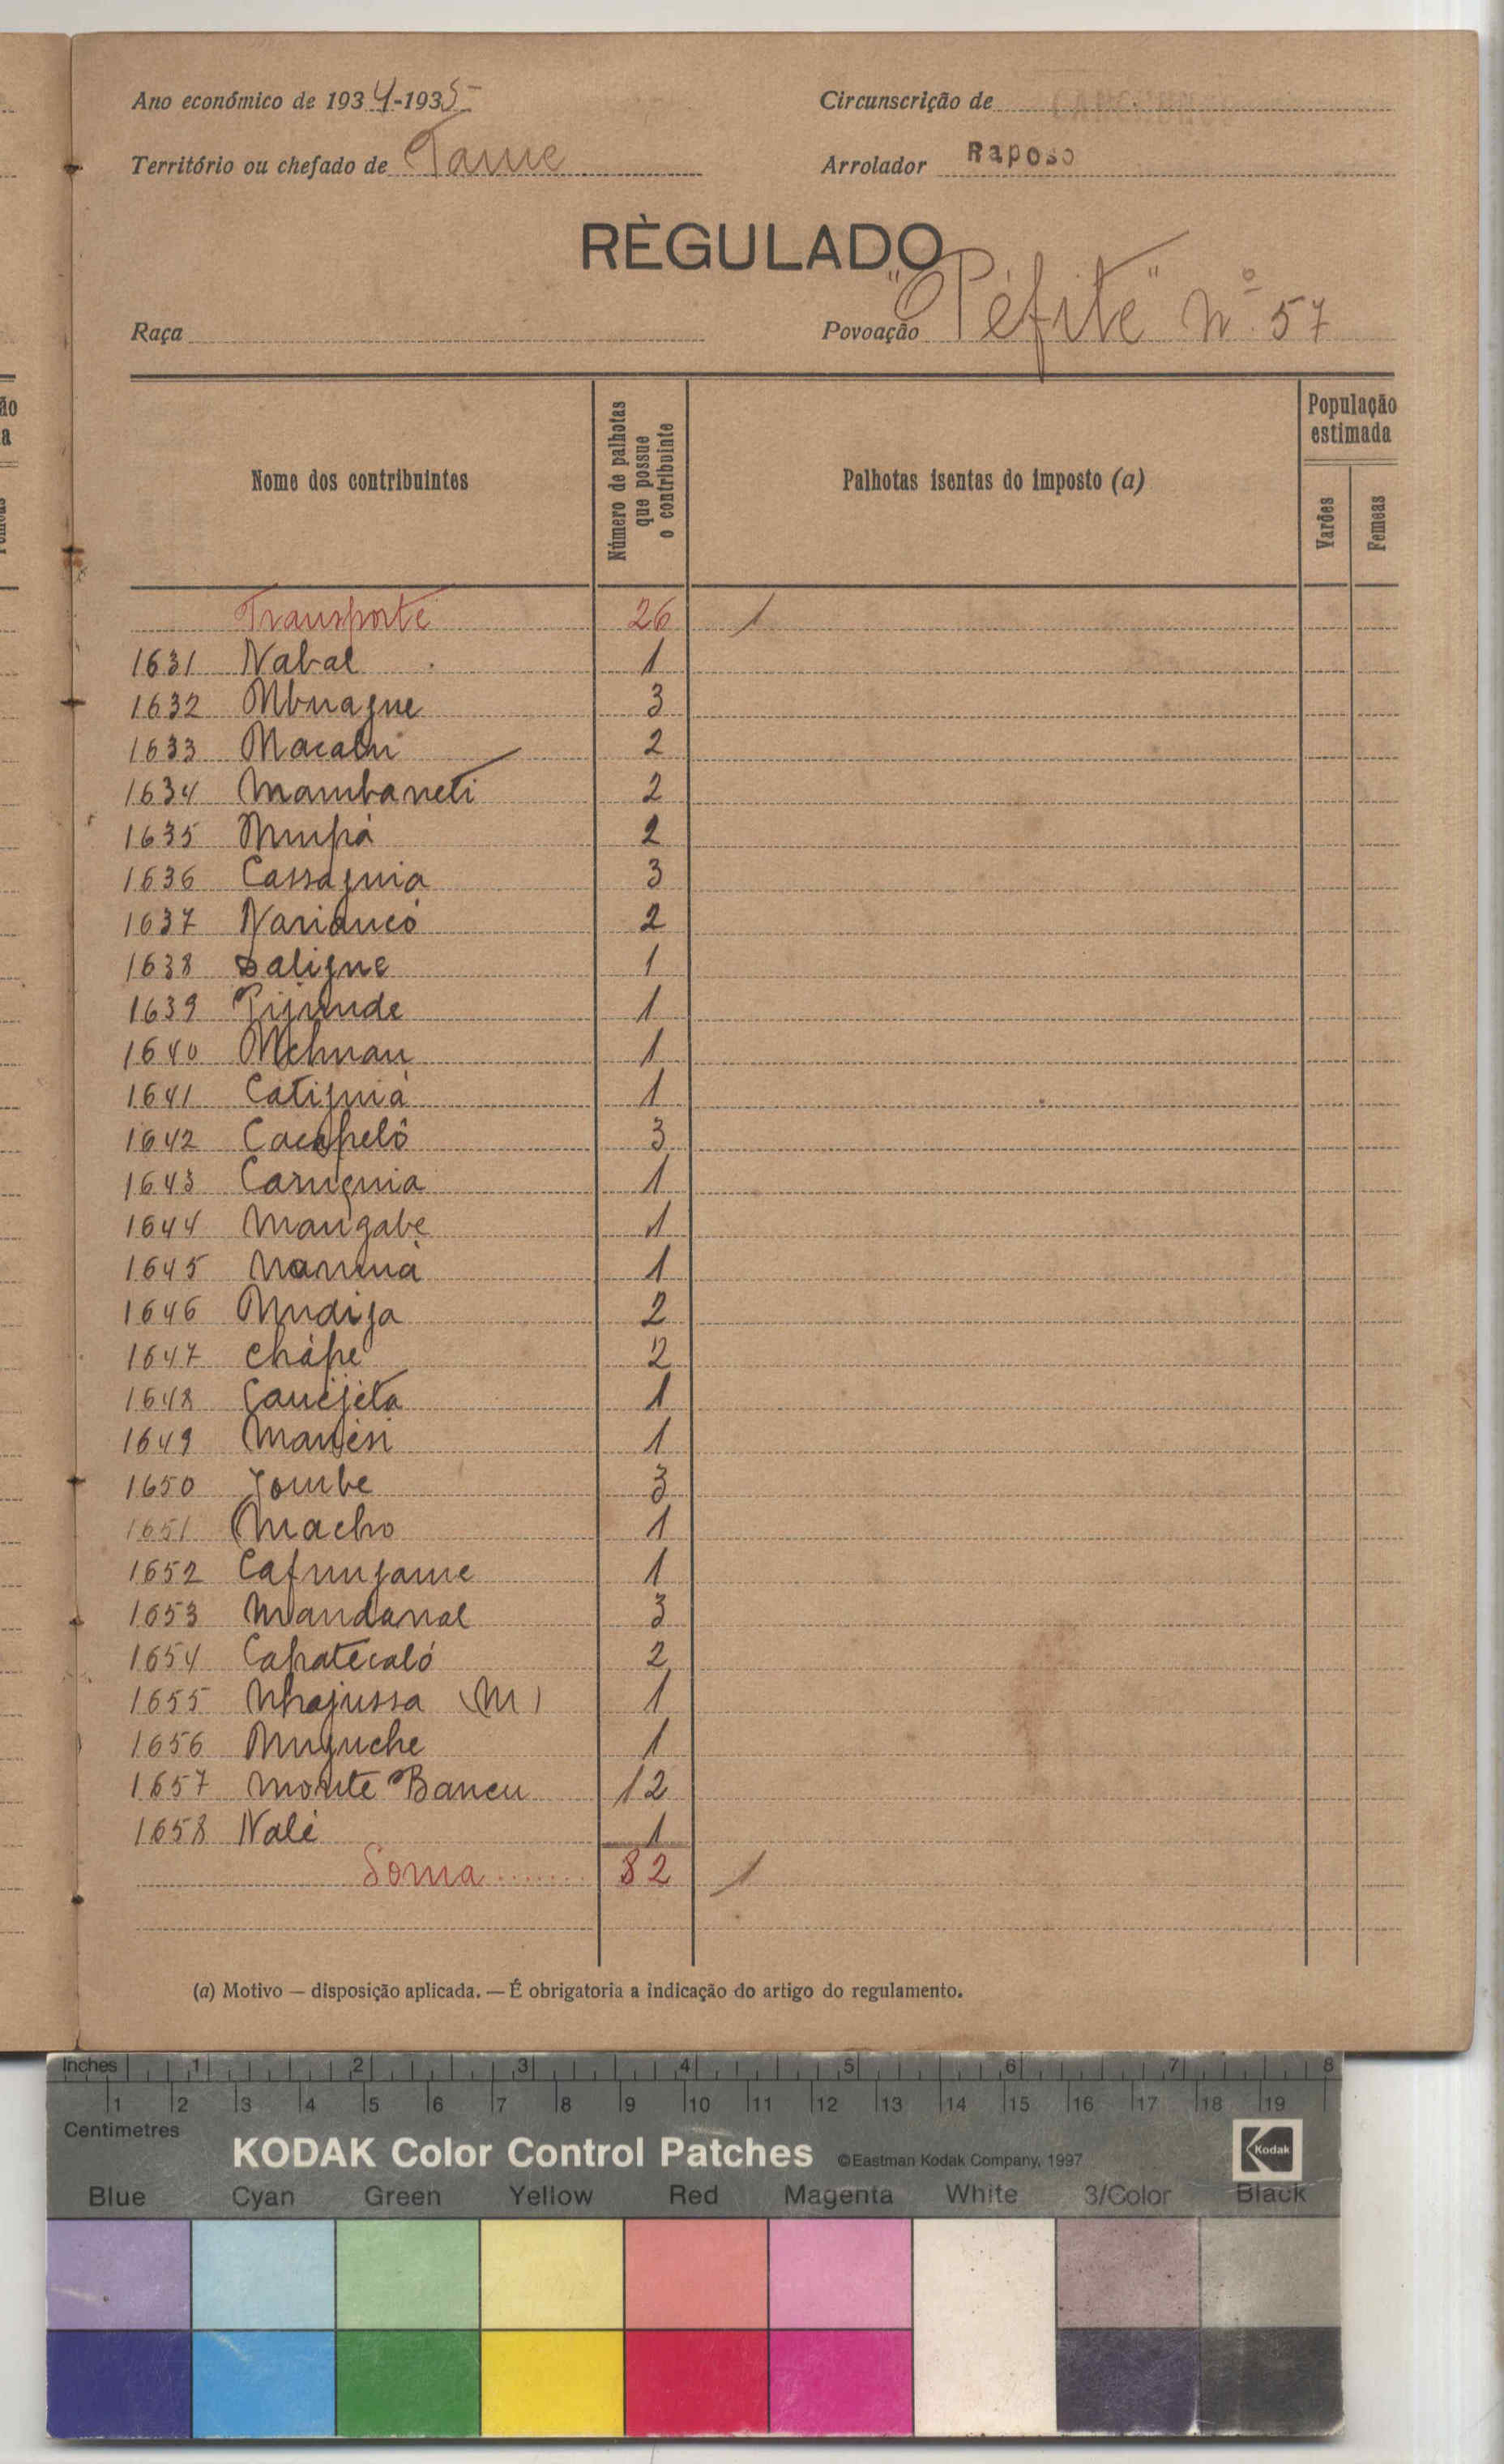 Ano económico de 1934-1935
Circunscrição de
Território ou chefado de Tame
Arrolador Raposo
RÈGULADO
Raça
Povoação "Péfite" nº 57
Nome dos contribuintes
Número de palhotas que possue o contribuinte
Palhotas isentas do imposto (a)
População estimada
Varões
Femeas
Transporte 26 1
1631 Nabal 1
1632 Mbuague 3
1633 Macabu 2
1634 Mambaneti 2
1635 Mupá 2
1636 Cassaguia 3
1637 Nariancó 2
1638 Saligue 1
1639 1
1640 1
1641 Catiguiá 1
1642 Cacapeló 3
1643 1
1644 Mangabe 1
1645 1
1646 Mudiga 2
1647 Chápe 2
1648 Canéjéta 1
1649 1
1650 Jombe 3
1651 Macho 1
1652 Cafungame 1
1653 Mandanal 3
1654 Capatécaló 2
1655 Nhajussa (M) 1
1656 Muguche 1
1657 Monte Bancu 12
1658 Nalé 1
Soma ....... 82 1
(a) Motivo — disposição aplicada. — É obrigatoria a indicação do artigo do regulamento.
Inches 1 2 3 4 5 6 7 8
1 2 3 4 5 6 7 8 9 10 11 12 13 14 15 16 17 18 19
Centimetres
KODAK Color Control Patches ©Eastman Kodak Company, 1997 Kodak
Blue Cyan Green Yellow Red Magenta White 3/Color Black